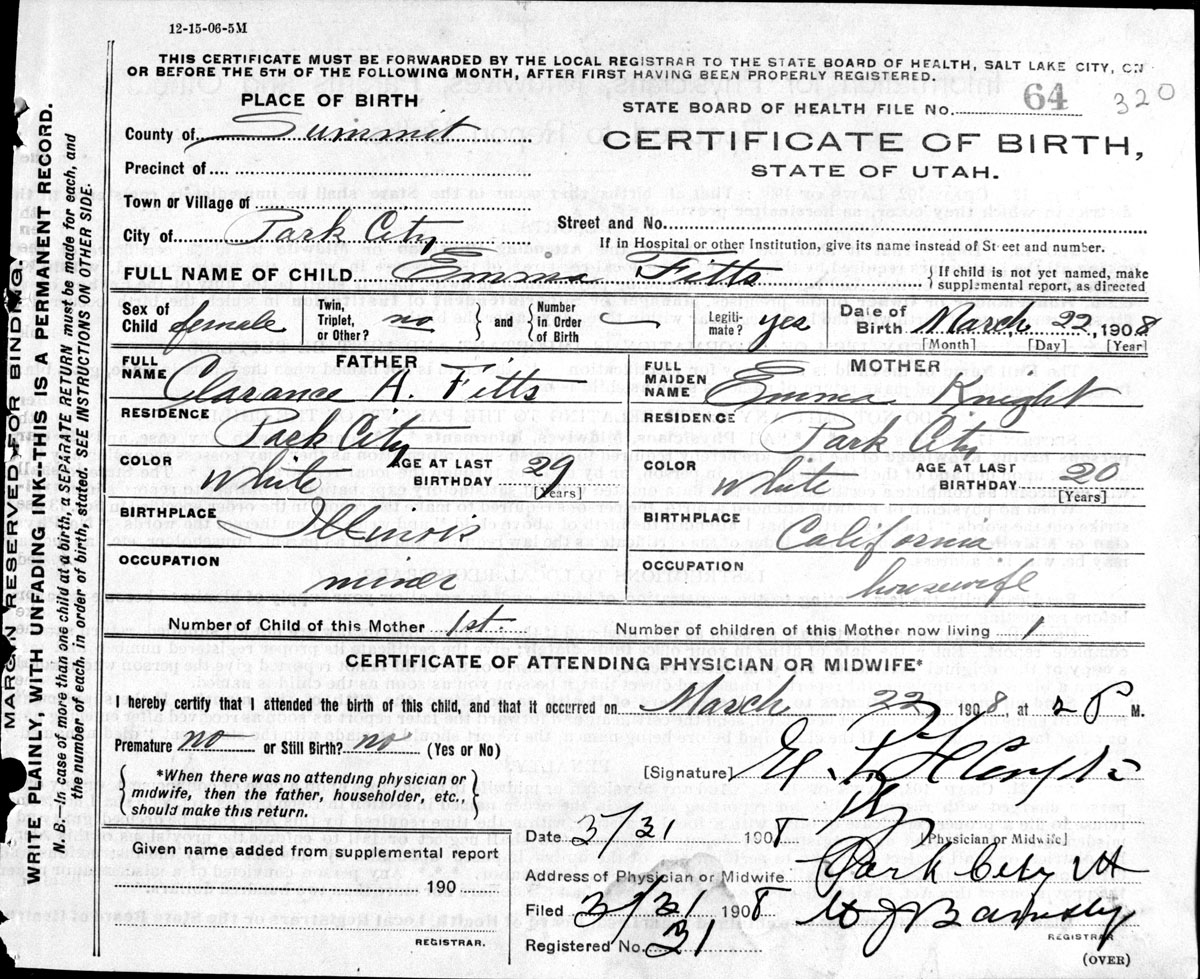 12-15-06-5M
THIS CERTIFICATE MUST BE FORWARDED BY THE LOCAL REGISTRAR TO THE STATE BOARD OF HEALTH, SALT LAKE CITY, ON
OR BEFORE THE 5TH OF THE FOLLOWING MONTH, AFTER FIRST HAVING BEEN PROPERLY REGISTERED.
PLACE OF BIRTH
STATE BOARD OF HEALTH FILE No. 64 320
County of Summit
CERTIFICATE OF BIRTH,
STATE OF UTAH.
Precinct of
Town or Village of
Street and No.
City of Park City
If in Hospital or other Institution, give its name instead of Street and number.
FULL NAME OF CHILD Emma Fitts { If child is not yet named, make supplemental report, as directed
Sex of Child female Twin, Triplet, or Other? no { and } Number in Order of Birth — Legiti-mate? yes Date of Birth March 22, 1908
[Month] [Day] [Year]
FATHER
FULL NAME Clarance A. Fitts
RESIDENCE Park City
COLOR White AGE AT LAST BIRTHDAY 29 [Years]
BIRTHPLACE
OCCUPATION miner
MOTHER
FULL MAIDEN NAME Emma Knight
RESIDENCE Park City
COLOR White AGE AT LAST BIRTHDAY 20 [Years]
BIRTHPLACE California
OCCUPATION housewife
Number of Child of this Mother 1st Number of children of this Mother now living 1
CERTIFICATE OF ATTENDING PHYSICIAN OR MIDWIFE*
I hereby certify that I attended the birth of this child, and that it occurred on March 22 1908 at 2 P M.
Premature no or Still Birth? no (Yes or No)
[Signature]
{ *When there was no attending physician or midwife, then the father, householder, etc., should make this return. }
[Physician or Midwife]
Date 3/31 1908
Address of Physician or Midwife Park City Ut
Given name added from supplemental report
190
REGISTRAR.
Filed 3/31 1908
REGISTRAR
Registered No. 31
(OVER)
MARGIN RESERVED FOR BINDING.
WRITE PLAINLY, WITH UNFADING INK—THIS IS A PERMANENT RECORD.
N. B.—In case of more than one child at a birth, a SEPARATE RETURN must be made for each, and
the number of each, in order of birth, stated. SEE INSTRUCTIONS ON OTHER SIDE.